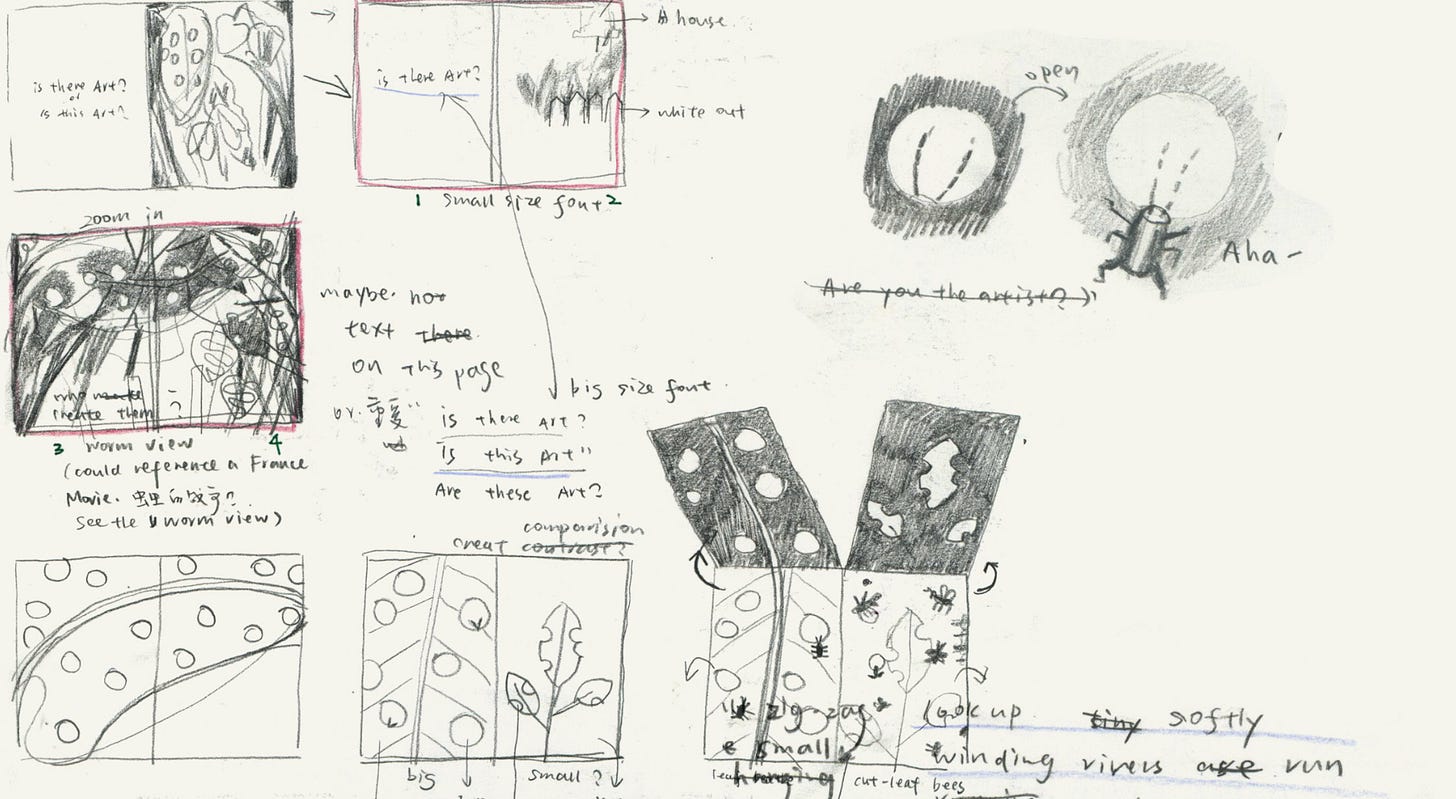 is there Art?
or
is this Art?
is there Art?
A house
white out
1 small size font 2
open
Aha-
Are you the artist?
zoom in
who make
create them ?
3 worm view 4
(could reference a France
Movie.
See the worm view)
maybe. no
text there
on this page
or.
big size font.
is there Art?
is this Art"
Are these Art?
comparision
creat contrast?
big
small?
zig-zag
small
hanging
cut-leaf bees
Look up tiny softly
winding rivers are run